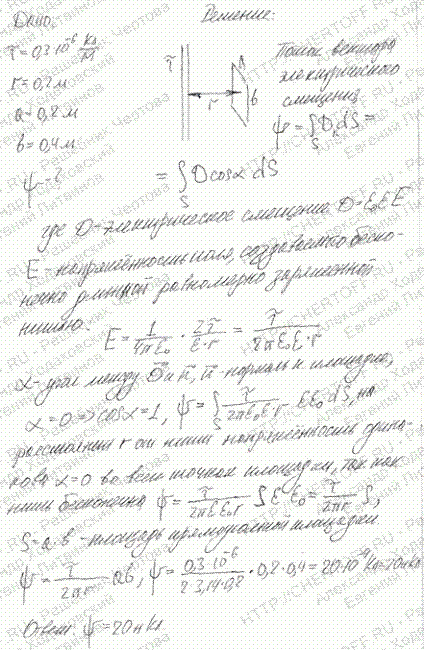 Дано:
τ = 0,3·10⁻⁶ Кл/м
r = 0,2 м
a = 0,2 м
b = 0,4 м
ψ - ?
Решение:
τ
r
a
b
Поток вектора
электрического
смещения
ψ = ∫_S D_n dS =
= ∫_S D cosα dS
где D - электрическое смещение D = ε₀εE
E - напряжённость поля, создаваемого беско-
нечно длинной равномерно заряженной
нитью. E = 1/(4πε₀) · 2τ/(ε·r) = τ/(2πε₀ε·r)
α - угол между D и n, n - нормаль к площадке,
α = 0 => cosα = 1, ψ = ∫_S τ/(2πε₀ε·r) εε₀ dS, на
расстоянии r от нити напряжённость одина-
кова α = 0 во всех точках площадки, так как
нить бесконечна ψ = τ/(2πεε₀r) S εε₀ = τ/(2πr) S,
S = a·b - площадь прямоугольной площадки
ψ = τ/(2πr) ab, ψ = 0,3·10⁻⁶/(2·3,14·0,2) · 0,2·0,4 = 20·10⁻⁹ Кл = 20 нКл
Ответ: ψ = 20 нКл
HTTP://CHERTOFF.RU - Решебник Чертова
Александр Ходаковский
Евгений Литвинов